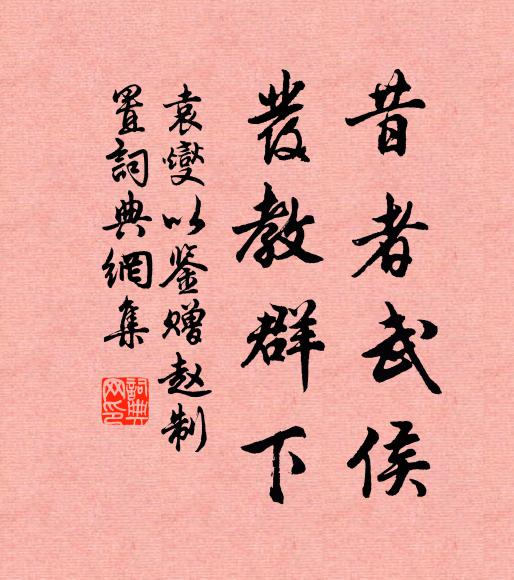 昔者武侯
发教群下
袁燮以鉴赠赵制
置詞典網集
詞典
网印